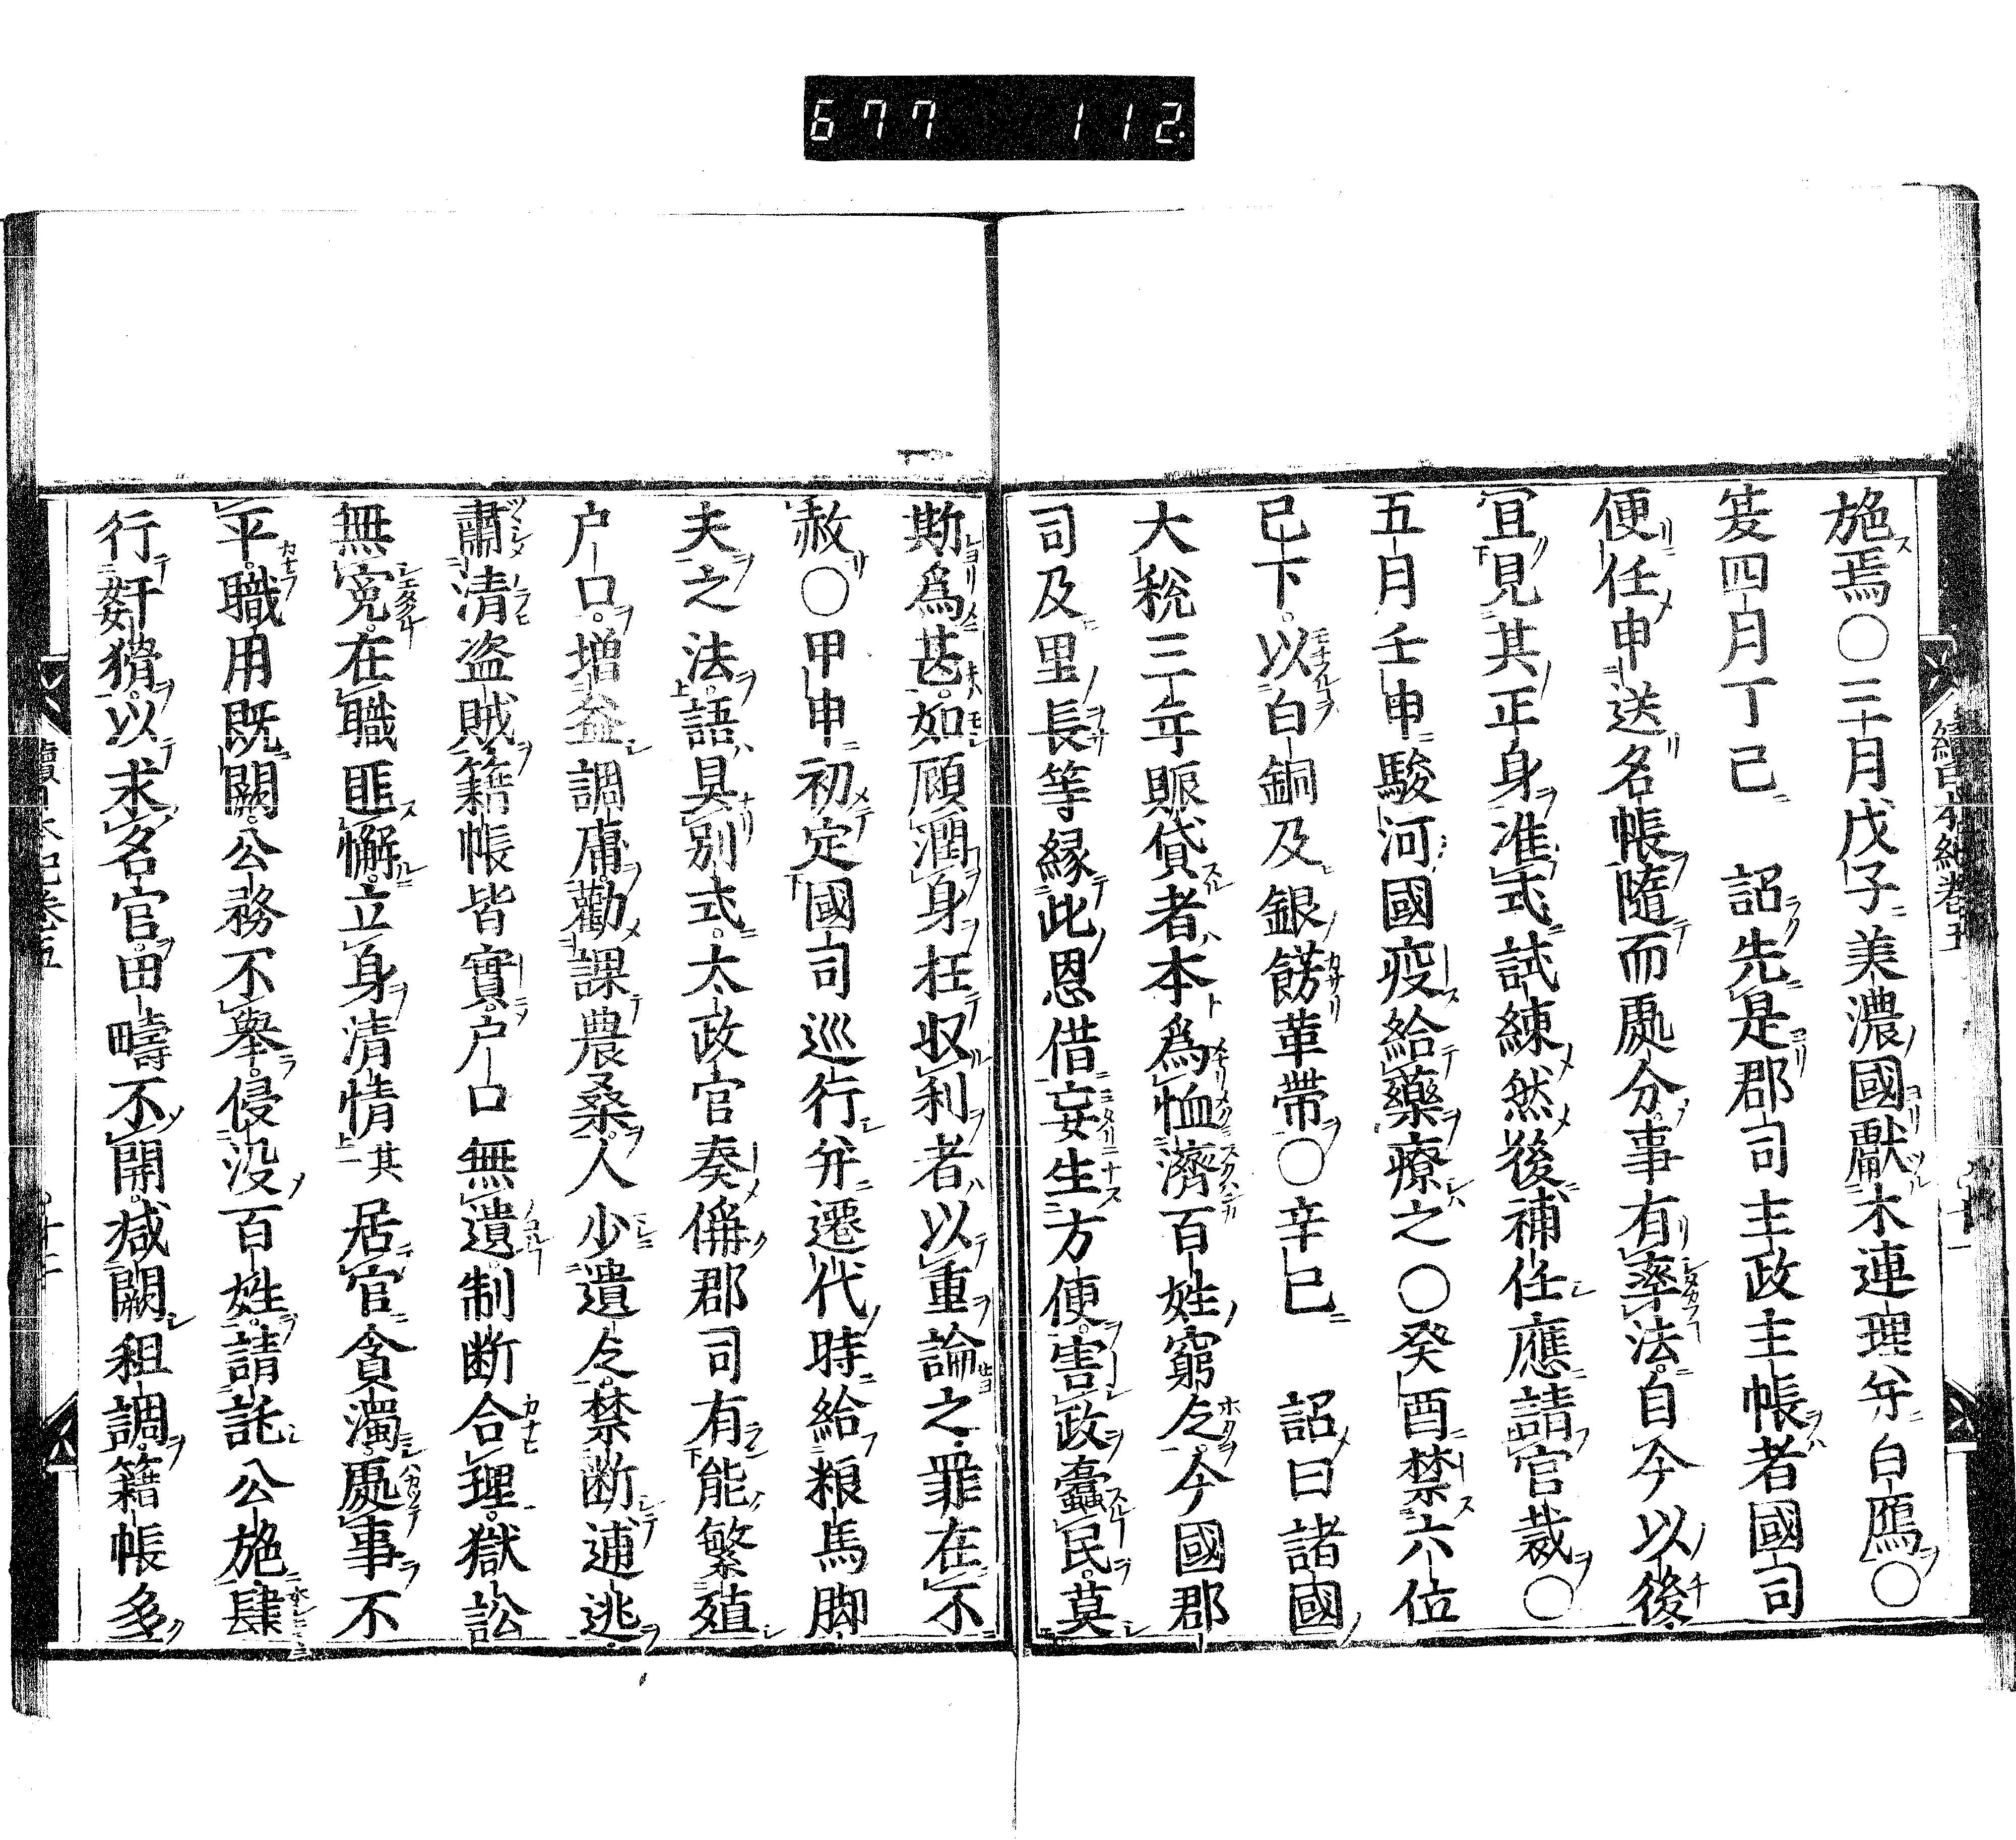 677 112
施焉〇三月戊子美濃國獻木連理幷白鴈〇
夏四月丁己 詔先是郡司主政主帳者國司
便任申送名帳隨而處分事有率法自今以後
宜見其正身准式試練然後補任應請官裁〇
五月壬申駿河國疫給藥療之〇癸酉禁六位
已下以白銅及銀餝革帶〇辛巳 詔曰諸國
大稅三年賑貸者本爲恤濟百姓窮乏今國郡
司及里長等縁此恩借妄生方便害政蠹民莫
斯爲甚如顧潤身枉収利者以重論之罪在不
赦〇甲申初定國司巡行幷遷代時給粮馬脚
夫之法語具別式太政官奏偁郡司有能繁殖
户口增益調庸勸課農桑人少遺乏禁断逋逃
肅清盜賊籍帳皆實户口無遺制断合理獄訟
無寃在職匪懈立身清愼其居官貪濁處事不
平職用既闕公務不舉侵沒百姓請託公施肆
行姧猾以求名官田疇不開減闕租調籍帳多